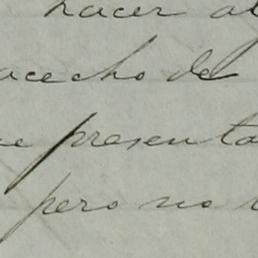 hacer al
acecho de
presenta
pero no